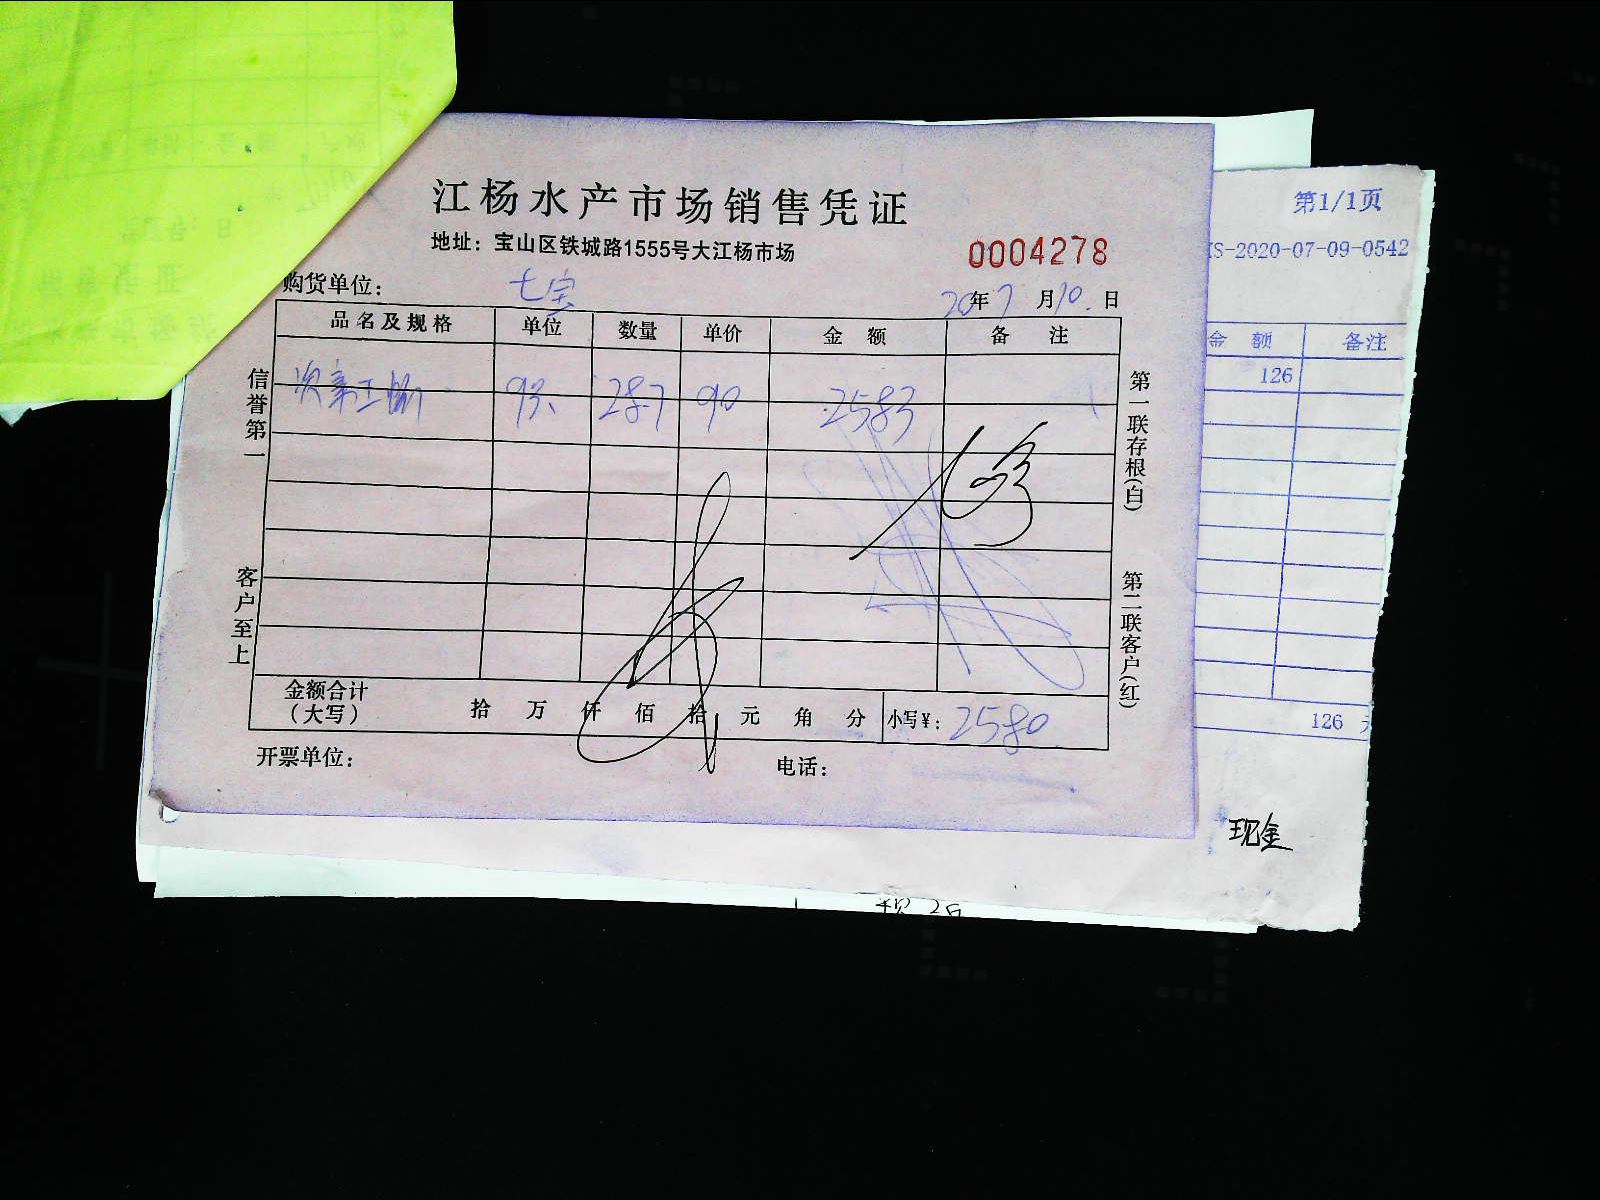 江杨水产市场销售凭证
地址：宝山区铁城路1555号大江杨市场
0004278
购货单位：七宝
20年7月10.日
品名及规格 单位 数量 单价 金额 备注
93、 28.7 90 2583
金额合计
（大写）
拾 万 仟 佰 拾 元 角 分 小写¥：2580
开票单位： 电话：
信誉第一
客户至上
第一联存根(白)
第二联客户(红)
第1/1页
S-2020-07-09-0542
金 额 备注
126
126
现金